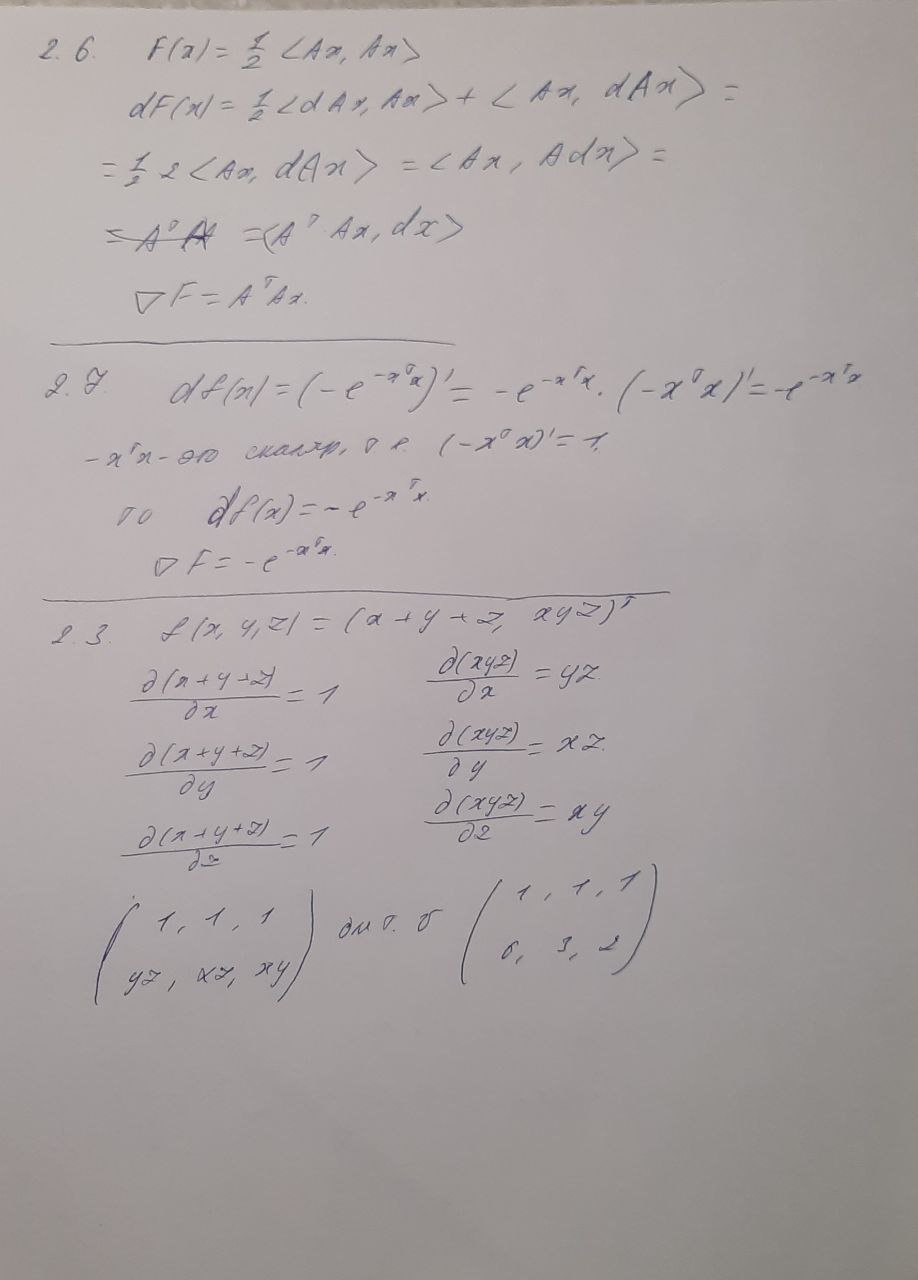 2.6. F(x) = 1/2 <Ax, Ax>
dF(x) = 1/2 <dAx, Ax> + <Ax, dAx> =
= 1/2 2 <Ax, dAx> = <Ax, Adx> =
= <A^T Ax, dx>
∇F = A^T Ax.
2.7. df(x) = (-e^{-x^T x})' = -e^{-x^T x} · (-x^T x)' = -e^{-x^T x}
-x^T x - это скаляр, т.е. (-x^T x)' = 1,
то df(x) = -e^{-x^T x}.
∇F = -e^{-x^T x}.
2.3. f(x, y, z) = (x + y + z, xyz)^T
∂(x+y+z)/∂x = 1 ∂(xyz)/∂x = yz
∂(x+y+z)/∂y = 1 ∂(xyz)/∂y = xz.
∂(x+y+z)/∂z = 1 ∂(xyz)/∂z = xy
(1, 1, 1) (1, 1, 1)
(yz, xz, xy) (6, 3, 2)